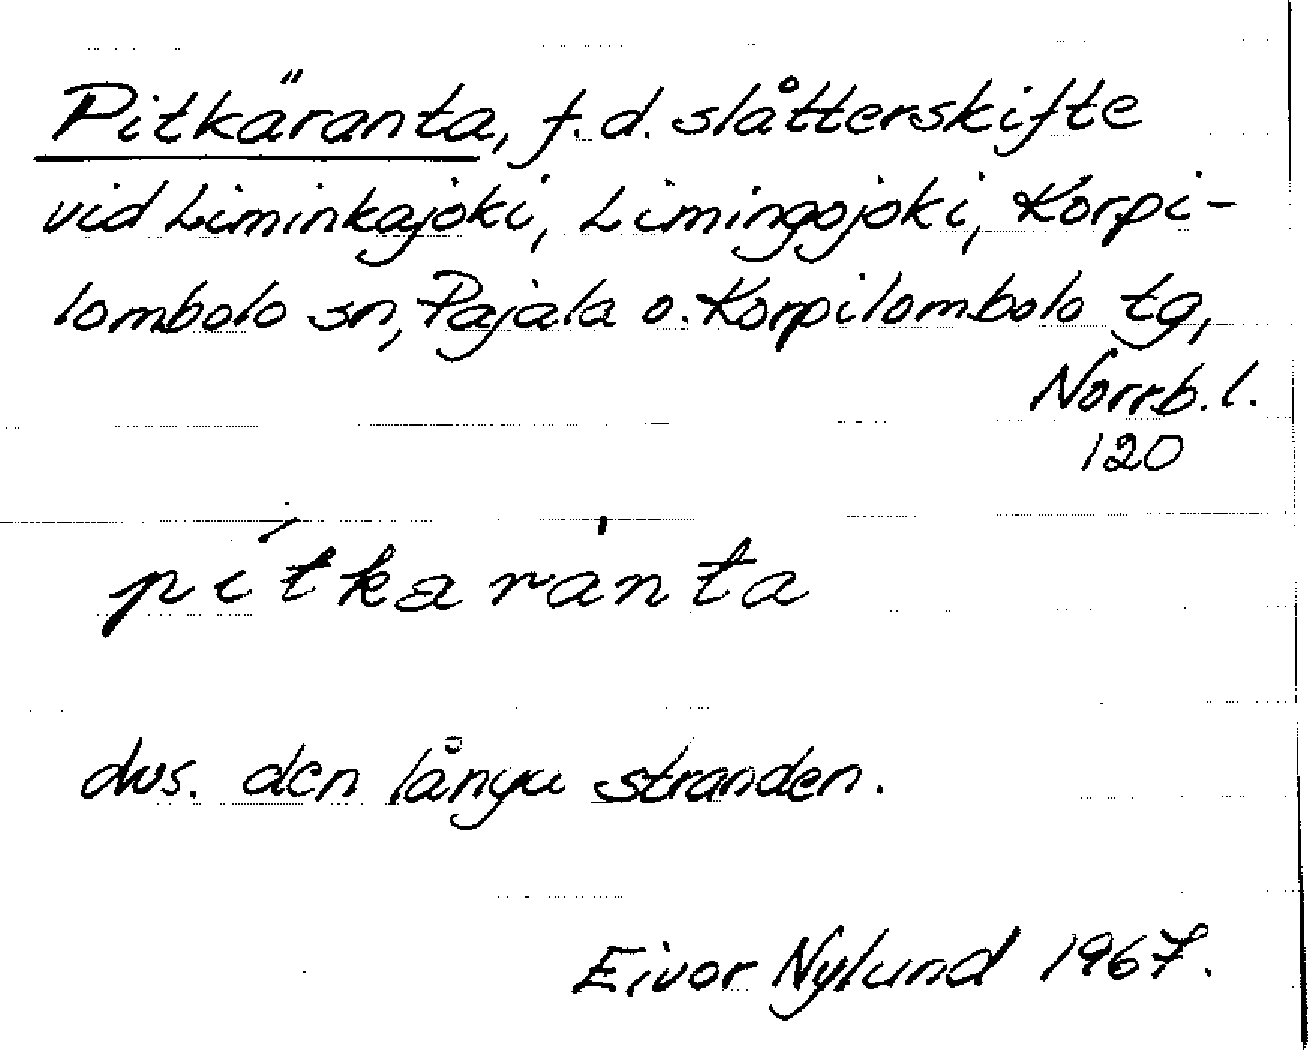 Pitkäranta, f.d. slåtterskifte
vid Liminkajoki, Limingojoki, Korpi-
lombolo sn, Pajala o. Korpilombolo tg,
Norrb. l.
120
pítkaránta
dvs. den långa stranden.
Eivor Nylund 1967.